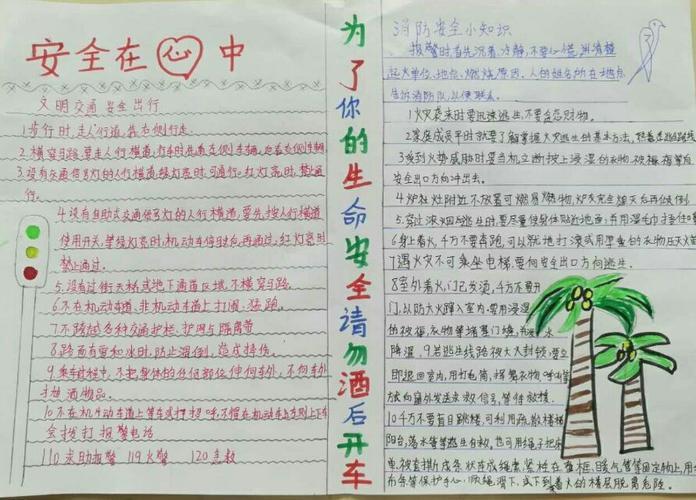 安全在心中
文明交通 安全出行
1.步行时,走人行道,靠右侧行走.
2.横穿马路,要走人行横道,
3.没有交通信号灯的人行横道
行。
4.没有自助式交通信号灯的人行横道,要先按人行横道
使用开关,等绿灯亮时,机动车停时后,再通过,红灯亮时
禁止通过。
5.没有过街天桥或地下通道区域,不横穿马路.
6.不在机动车道、非机动车道上打闹、猛跑.
7.不跨越各种交通护栏、护网与隔离带
8.路面有雪和冰时,防止滑倒,造成摔伤.
9.乘车过程中,不把身体的任何部位伸向车外,不向车外
抛洒物品.
10.不在机动车道上等车或打招呼
会拨打报警电话
110求助报警 119火警 120急救
为了你的生命安全请勿酒后开车
消防安全小知识
报警时首先沉着、冷静,不要心慌
起火单位、地点、燃烧原因、人的姓名所在地点
告诉消防队,以便联系。
1.火灾袭来时要迅速逃生,不要贪恋财物.
2.家庭成员平时就要了解掌握火灾逃生的基本方法,
3.受到火势威胁时要当机立断披上浸湿的衣物被褥等向
安全出口方向冲出去.
4.炉灶附近不放置可燃易燃物,
5.穿过浓烟逃生时要尽量使身体贴近地面,并用湿毛巾捂住口
6.身上着火,千万不要奔跑,可以就地打滚或用厚重的衣物压灭火
7.遇火灾不可乘坐电梯,要向安全出口方向逃生.
8.室外着火,门已发烫,千万不要开
门,以防大火蹿入室内,要用浸湿
的被褥、衣物等堵塞门窗,并泼水
降温,9.若逃生线路被大火封锁,要立
即退回室内,用打手电筒,挥舞衣物,呼叫等
方式向窗外发送求救信号,等待救援.
10.千万不要盲目跳楼,可利用疏散楼梯
阳台,落水管等逃生自救,也可用绳子把床
单,被套撕成条状连成绳索,紧栓在窗框、暖气管等固定物上,用
布等保护手心,顺绳滑下,或下到着火的楼层脱离危险.